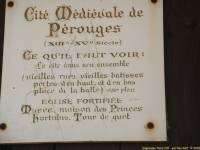 Cité Médiévale de
Pérouges
(XIIIe - XVe Siècle)
CE QU'IL FAUT VOIR :
La cité dans son ensemble
(vieilles rues vieilles bâtisses
portes d'en haut, et d'en bas
place de la halle)
EGLISE FORTIFIÉE
Musée, maison des Princes
Tour de guet